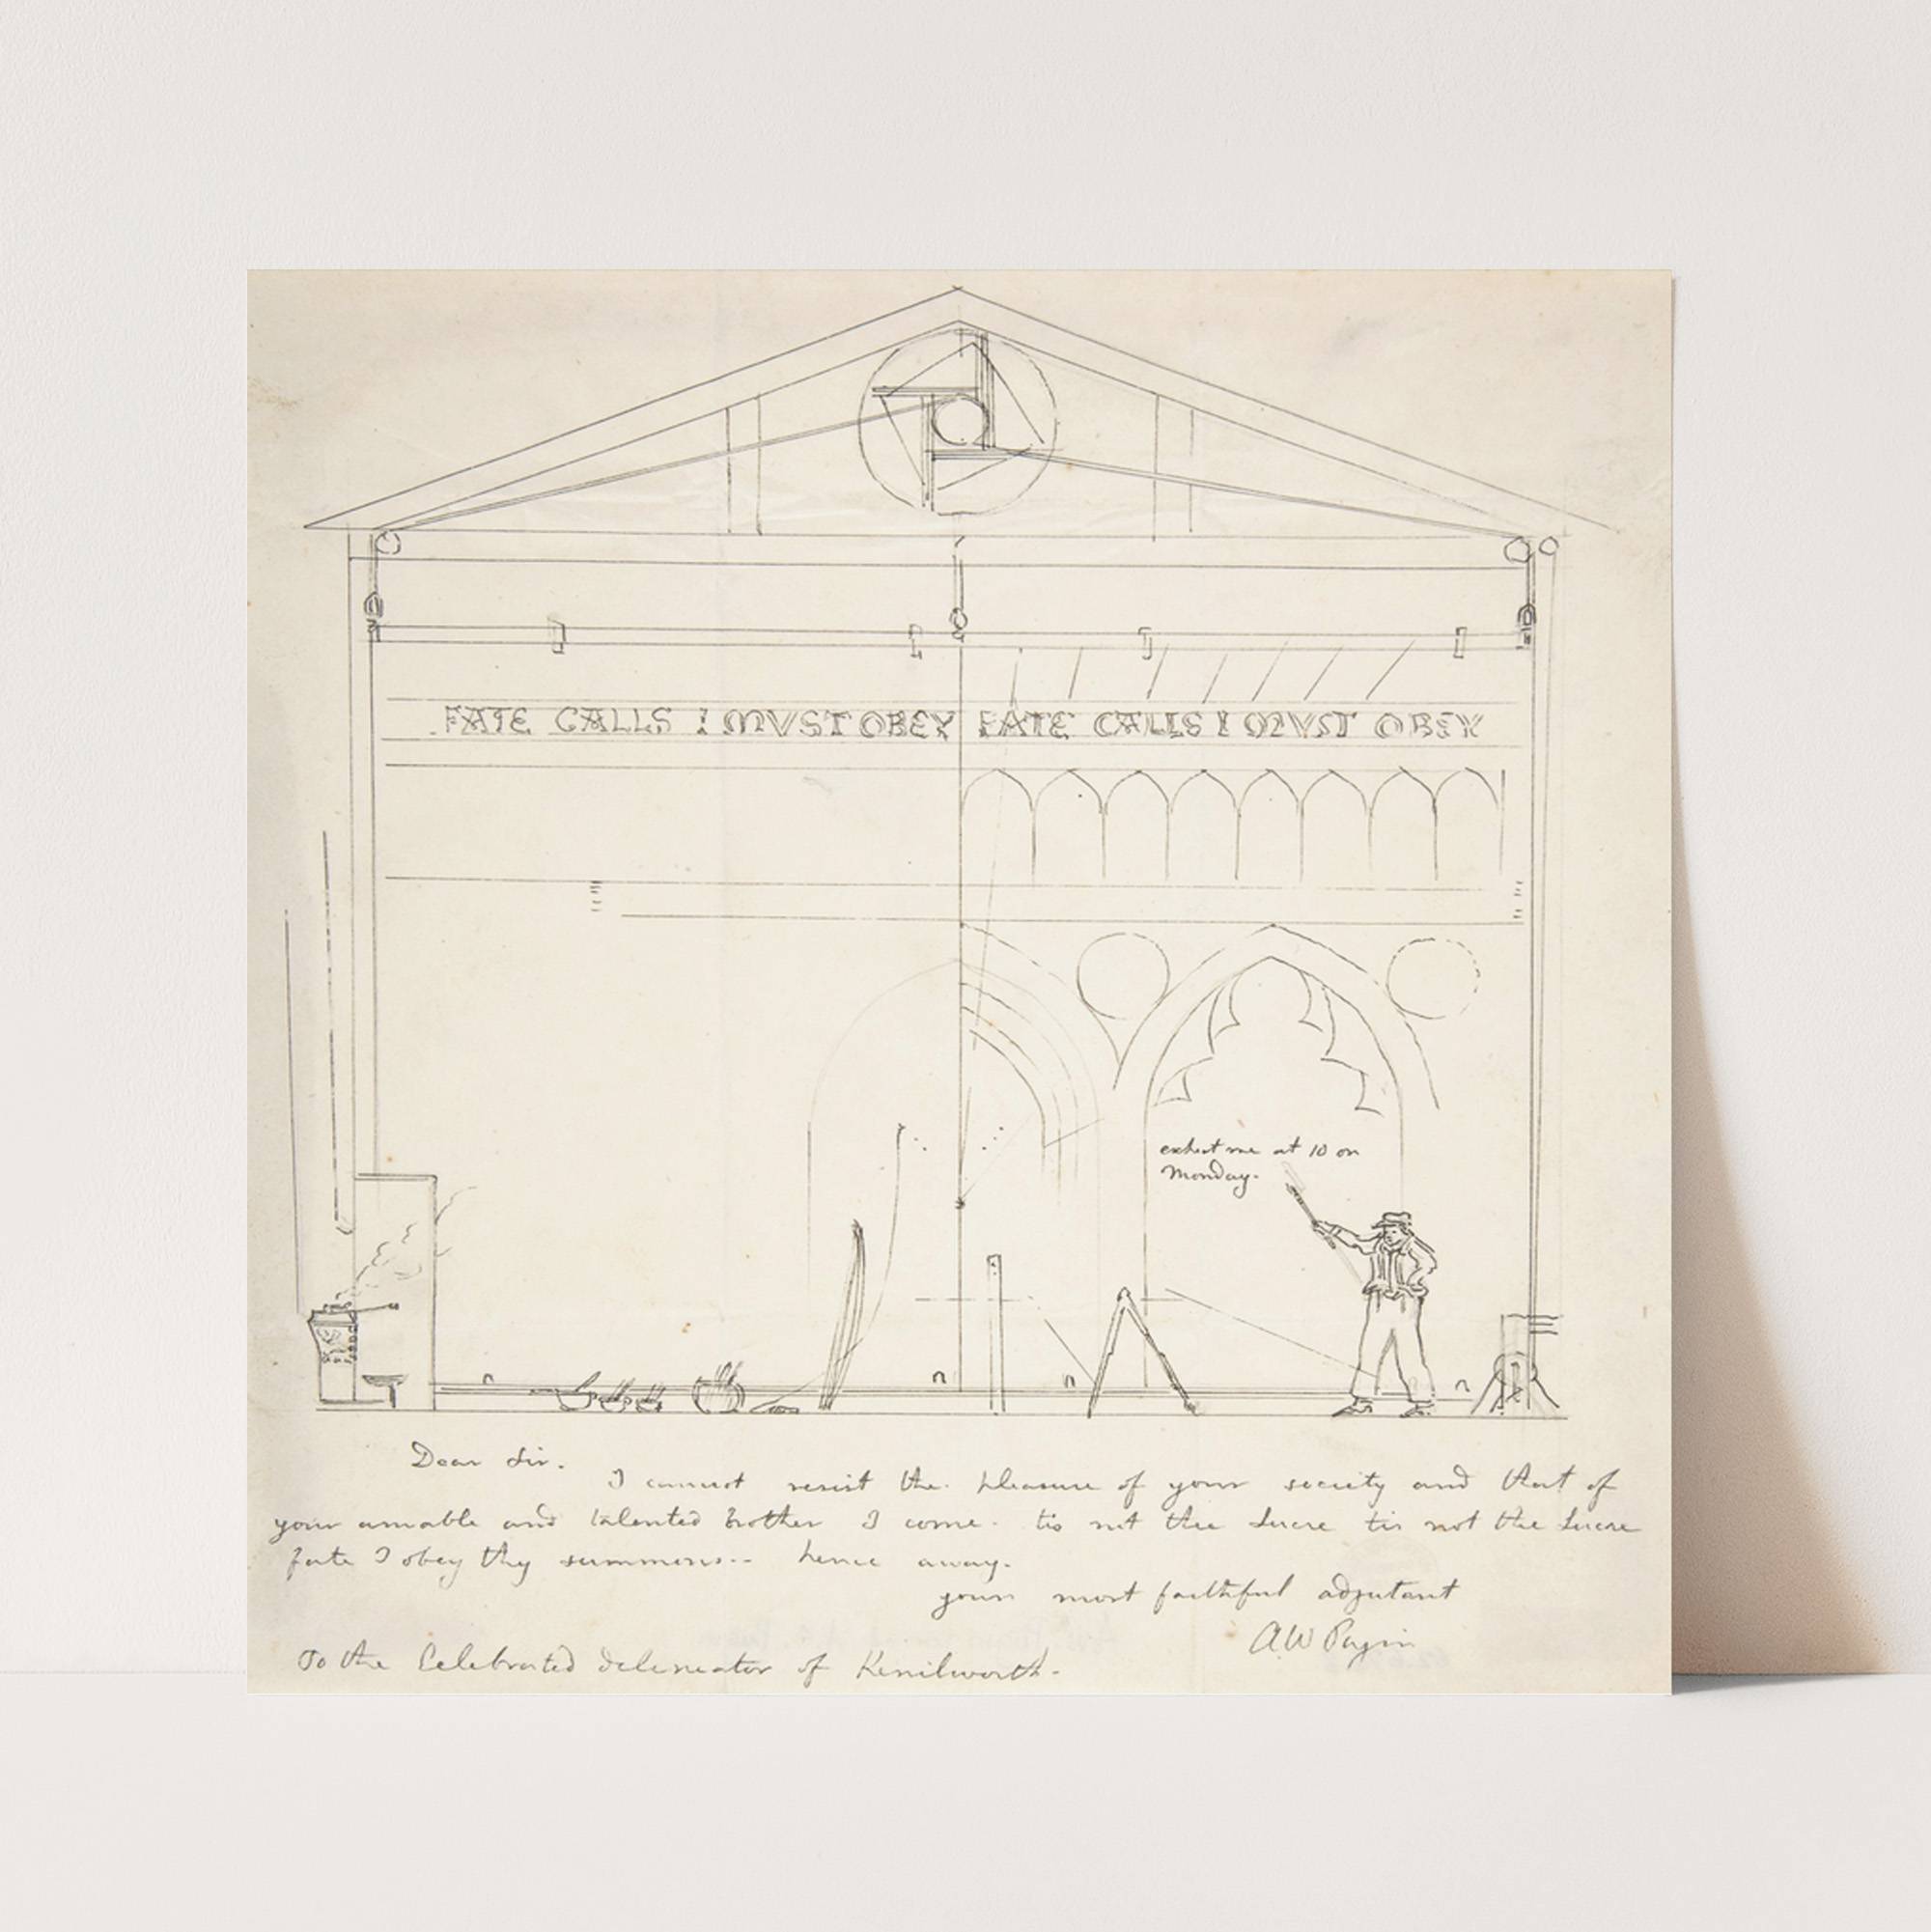 FATE CALLS I MVST OBEY FATE CALLS I MVST OBEY
exhect me at 10 on
Monday.
Dear Sir.
I cannot resist the pleasure of your society and that of
your amable and talented brother I come. tis not the lucre tis not the lucre
fate I obey thy summons.. hence away.
your most faithful adjutant
A W Pugin
To the Celebrated delineator of Kenilworth.